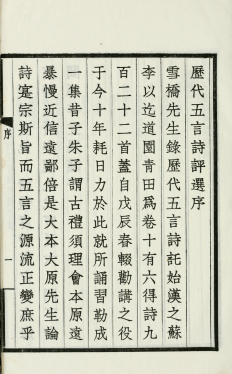 歷代五言詩評選序
雪橋先生錄歷代五言詩託始漢之蘇
李以迄道園青田為卷十有六得詩九
百二十二首蓋自戊辰春輟勸講之役
于今十年耗日力於此就所誦習勒成
一集昔子朱子謂古禮須理會本原遠
暴慢近信遠鄙倍是大本大原先生論
詩寔宗斯旨而五言之源流正變庶乎
序
一